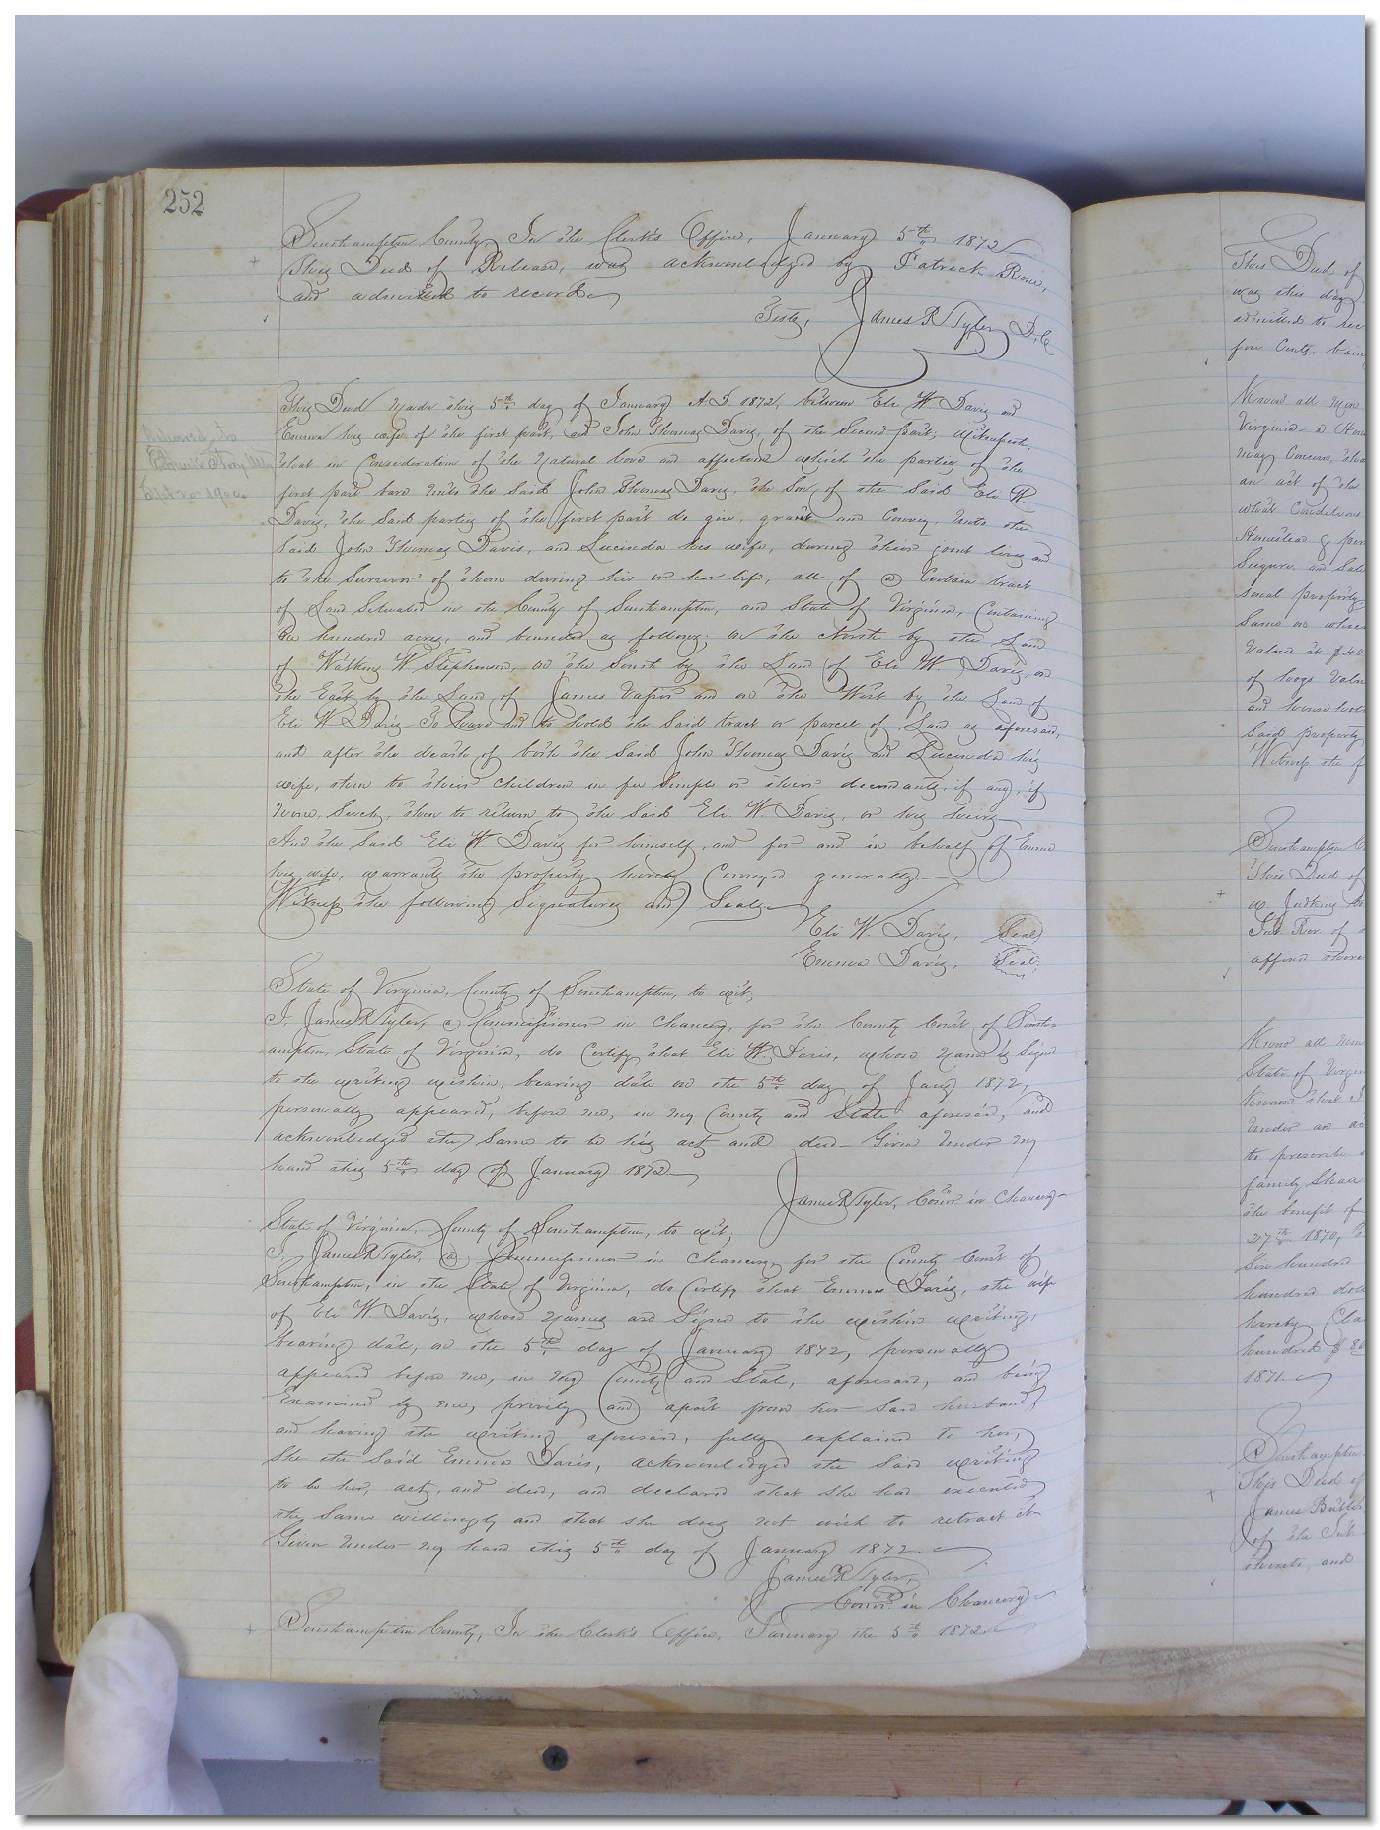 252
Southampton County, In the Clerk's Office, January 5th 1872
This Deed of Release, was acknowledged by Patrick Rowe,
and admitted to record
Teste, James R Tyler D.C.
This Deed made this 5th day of January A.D 1872, between Eli W. Davis and
Emma his wife of the first part, and John Thomas Davis, of the second part; Witnesseth.
that in Consideration of the Natural love and affection which the parties of the
first part have unto the said John Thomas Davis, the Son, of the said Eli W
Davis, the said parties of the first part do give, grant and Convey, unto the
said John Thomas Davis, and Lucinda his wife, during their joint lives and
to the Survivor of them during his or her life, all of a Certain tract
of Land Situated in the County of Southampton, and State of Virginia, Containing
hundred acres, and bounded as follows; on the North by the Land
of Watkins W Stephenson, on the South by the Land of Eli W. Davis, on
the East by the Land of James and on the West by the Land of
Eli W Davis To have and to hold the said tract or parcel of Land as aforesaid,
and after the death of both the said John Thomas Davis and Lucinda his
wife, then to their children in fee simple or their decendants, if any, if
none such, then to return to the said Eli W. Davis, or his heirs
And the said Eli W Davis for himself, and for and in behalf of Emma
his wife, warrants the property hereby Conveyed generally
Witness the following Signatures and Seals
Eli W. Davis, Seal
Emma Davis, Seal
Released to
1900
State of Virginia, County of Southampton, to wit;
I, James R Tyler, a Commissioner in Chancery, for the County Court of South-
ampton, State of Virginia, do Certify that Eli W. Davis, whose name is Signed
to the writing within, bearing date on the 5th day of Jany 1872,
personally appeared, before me, in my County and State aforesaid, and
acknowledged the same to be his act and deed Given under my
hand this 5th day of January 1872
James R Tyler, Comr in Chancery
State of Virginia, County of Southampton, to wit;
I, James R Tyler, a Commissioner in Chancery for the County Court of
Southampton, in the State of Virginia, do Certify that Emma Davis, the wife
of Eli W. Davis, whose names are Signed to the within writing,
bearing date, on the 5th day of January 1872, personally
appeared before me, in my County and State, aforesaid, and being
Examined by me, privily and apart from her said husband,
and having the writing aforesaid, fully explained to her,
She the said Emma Davis, acknowledged the said writing
to be her, act, and deed, and declared that she had executed
the same willingly and that she does not wish to retract it
Given under my hand this 5th day of January 1872.
James R Tyler,
Comr in Chancery
Southampton County, In the Clerk's Office, January the 5th 1872
This Deed of
was this day
admitted to rec
four Cents. bein
Know all men
Virginia a
may Concern, tha
an act of the
what Conditions
Homestead & per
sonal property
Same on
Valued at $40
of hogs Valu
and household
said property
Witness the f
Southampton C
This Deed of
w. Judkins
Int. Rev. of
affixed there
Know all men
State of Virgin
known that I
under an ac
to prescribe
family shall
the benefit of
27th 1870,
Six hundred
hundred doll
hereby Cla
hundred $ 8
1871.
Southampton
This Deed of
James Butler
of the Int
thereto, and